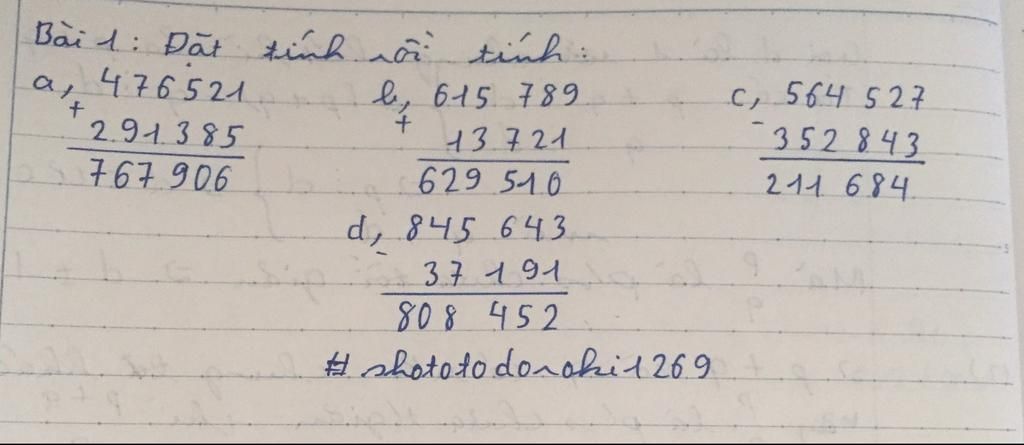 Bài 1: Đặt tính rồi tính:
a, 476521 b, 615 789 c, 564 527
+ + -
291385 13 721 352 843
767 906 629 510 211 684
d, 845 643
-
37 191
808 452
# shototodoroki1269